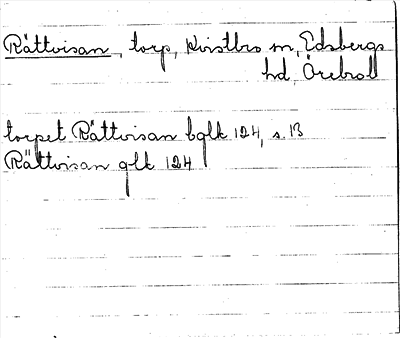 Rättvisan, torp, Kvistbro sn, Edsbergs
hd, Örebro ll
torpet Rättvisan bglk 124, s. 13
Rättvisan glk 124